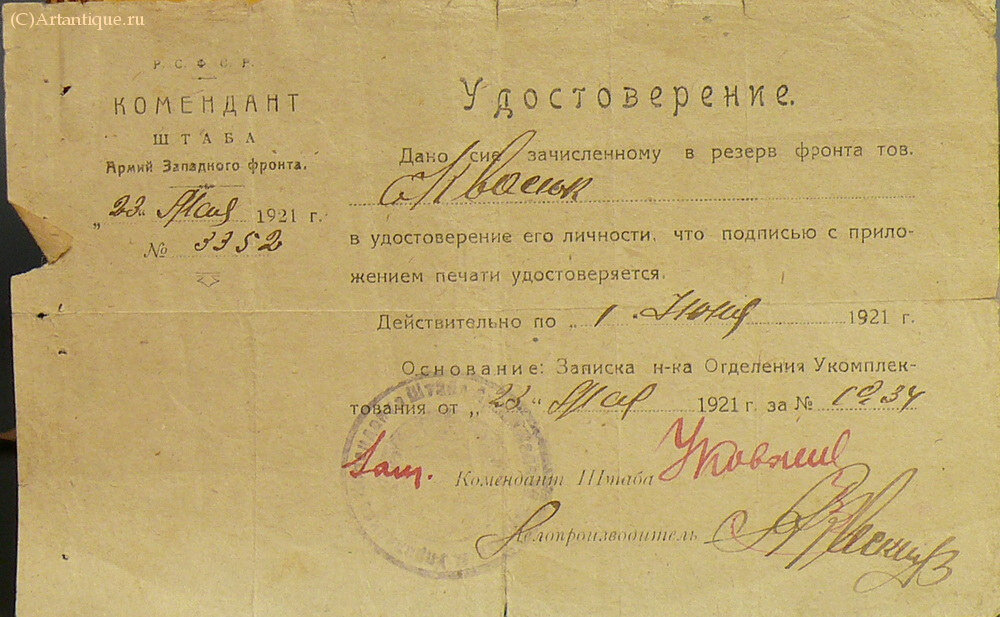 (C)Artantique.ru
Р. С. Ф. С. Р.
КОМЕНДАНТ
ШТАБА
Армий Западного фронта.
„23" Мая 1921 г.
№ 3352
Удостоверение.
Дано сие зачисленному в резерв фронта тов.
в удостоверение его личности, что подписью с прило-
жением печати удостоверяется.
Действительно по „1" Июня 1921 г.
Основание: Записка н-ка Отделения Укомплек-
тования от „23" Мая 1921 г. за №
Комендант Штаба
Делопроизводитель